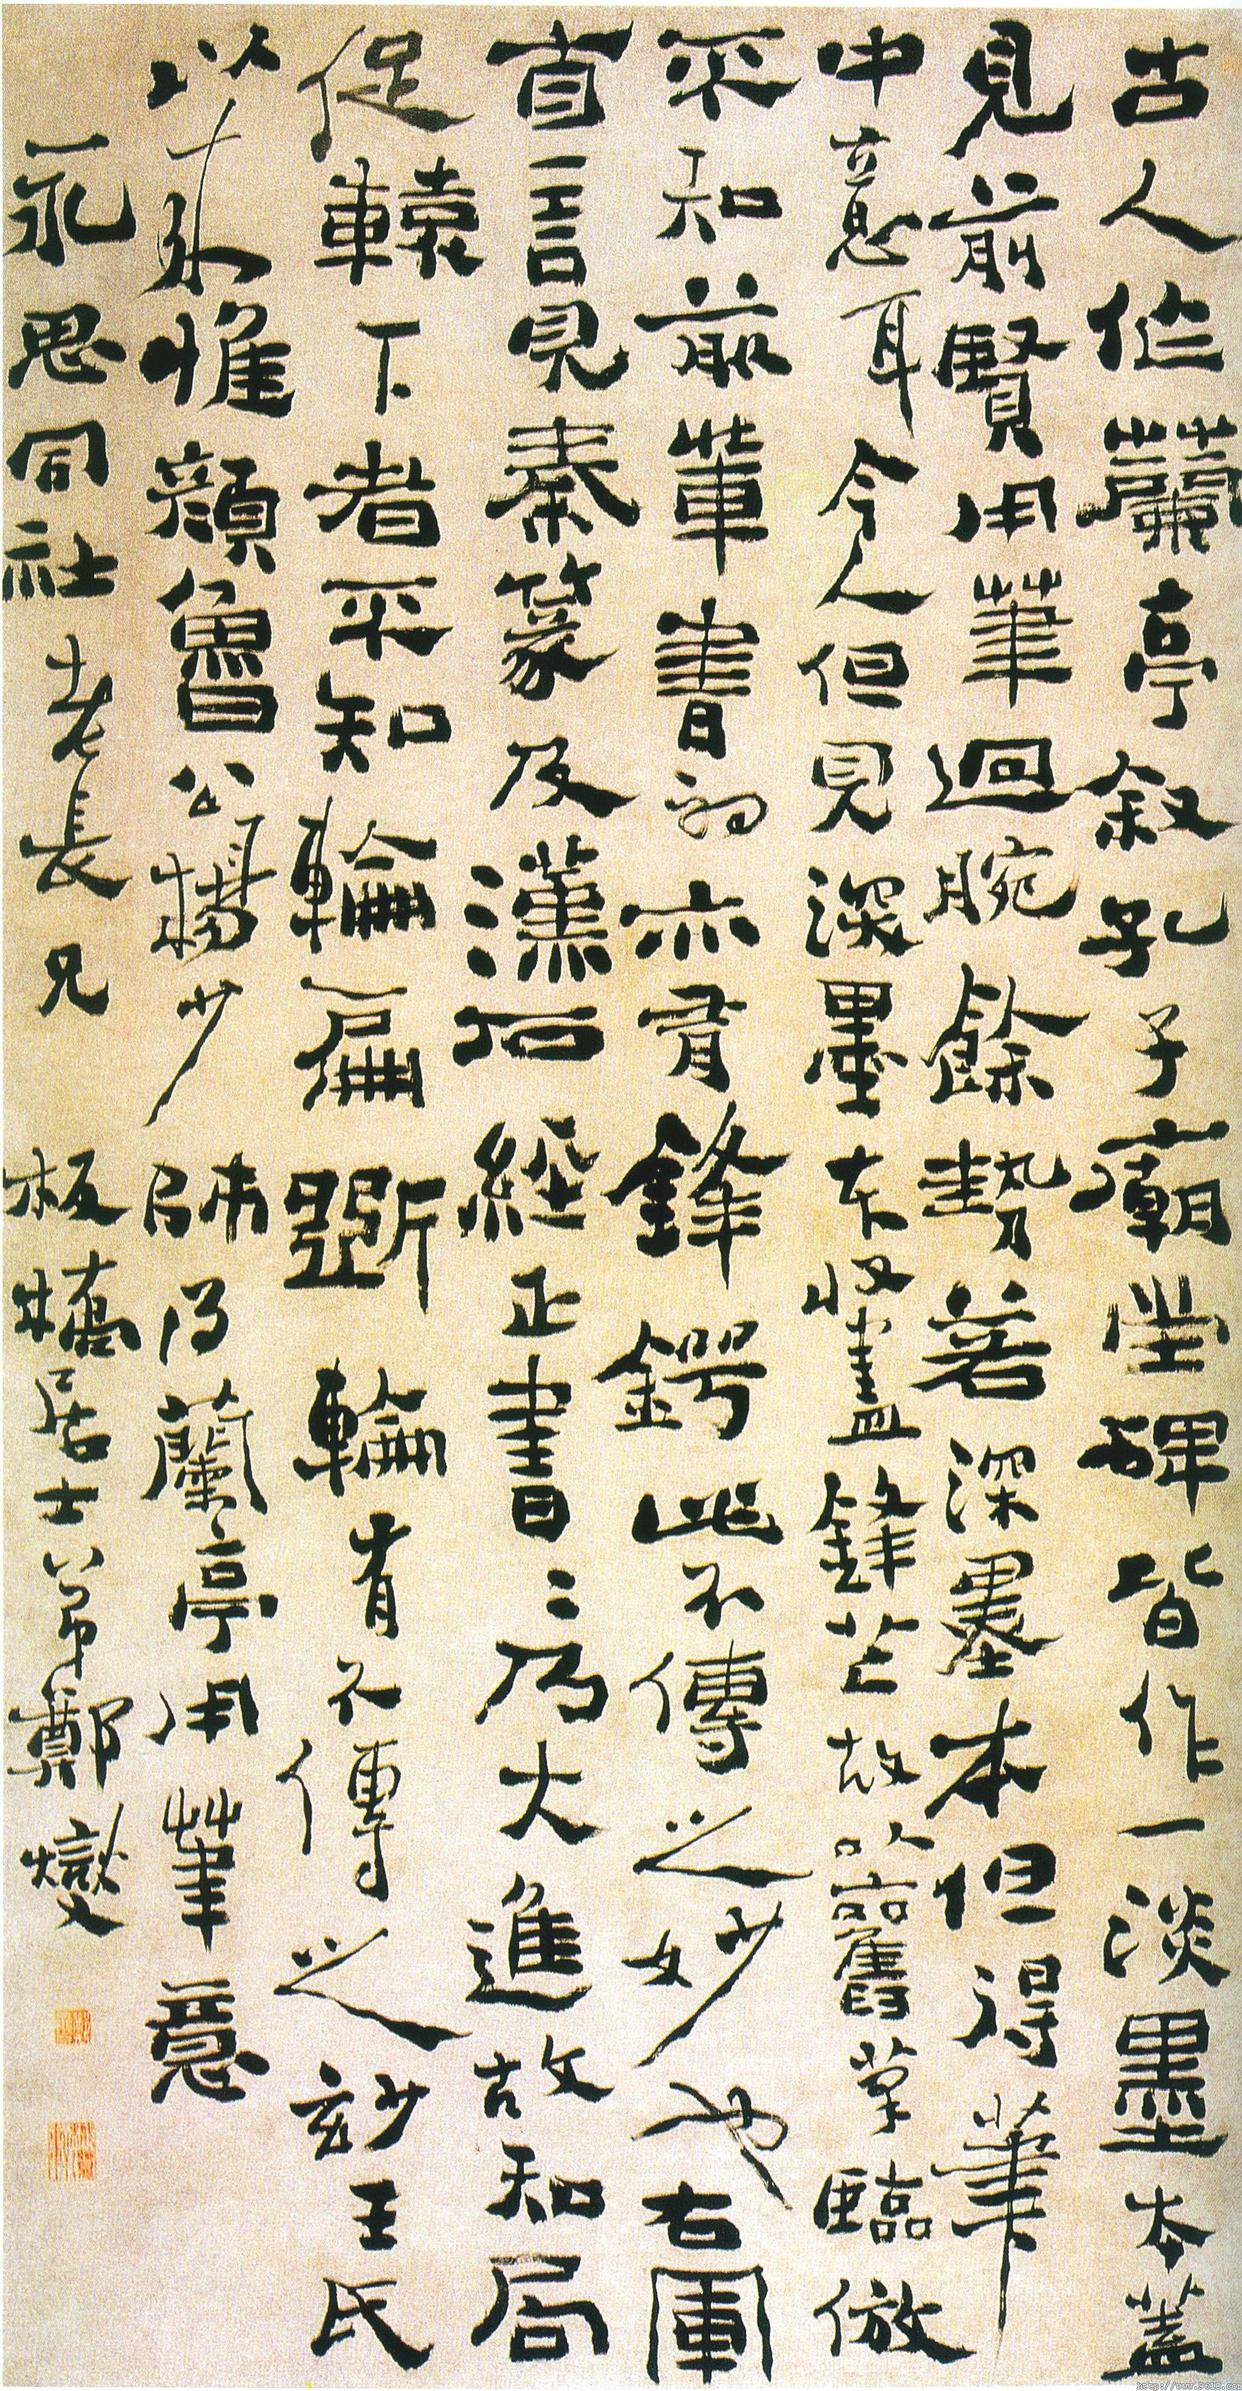 古人作蘭亭叙孔子廟堂碑皆作一淡墨本蓋
見前賢用筆迴腕餘勢若深墨本但得筆
中意耳今人但見深墨本收盡鋒芒故以舊筆臨倣
不知前輩書初亦有鋒鍔此不傳之妙也右軍
自言見秦篆及漢石經正書書乃大進故知局
促轅下者不知輪扁斵輪有不傳之妙王氏
以來惟顔魯公楊少師得蘭亭用筆意
永思同社老長兄 板橋居士弟鄭燮